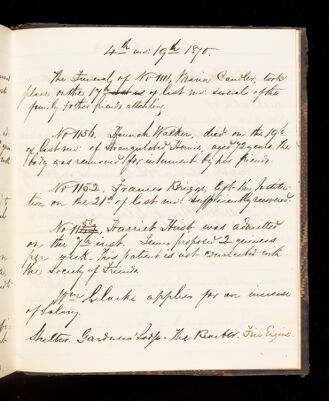 4th mo: 19th 1875.
The Funeral of No 1111, Maria Candler, took
place on the 17th of last mo. several of the
family & other friends attending.
No 1156. Hannah Walker, died on the 19th
of last mo. of Strangulated Hernia, aged 72 years. The
body was removed for interment by her friends.
No 1152. Frances Briggs, left the Institu-
tion on the 21st of last mo. sufficiently recovered.
No 11 Harriet Hirst was admitted
on the 7th inst. Terms proposed 2 guineas
per week. This patient is not connected with
the Society of Friends.
Wm Clarke applies for an increase
of Salary.
Shelter. Gardener's Lodge. The Fire Engine.